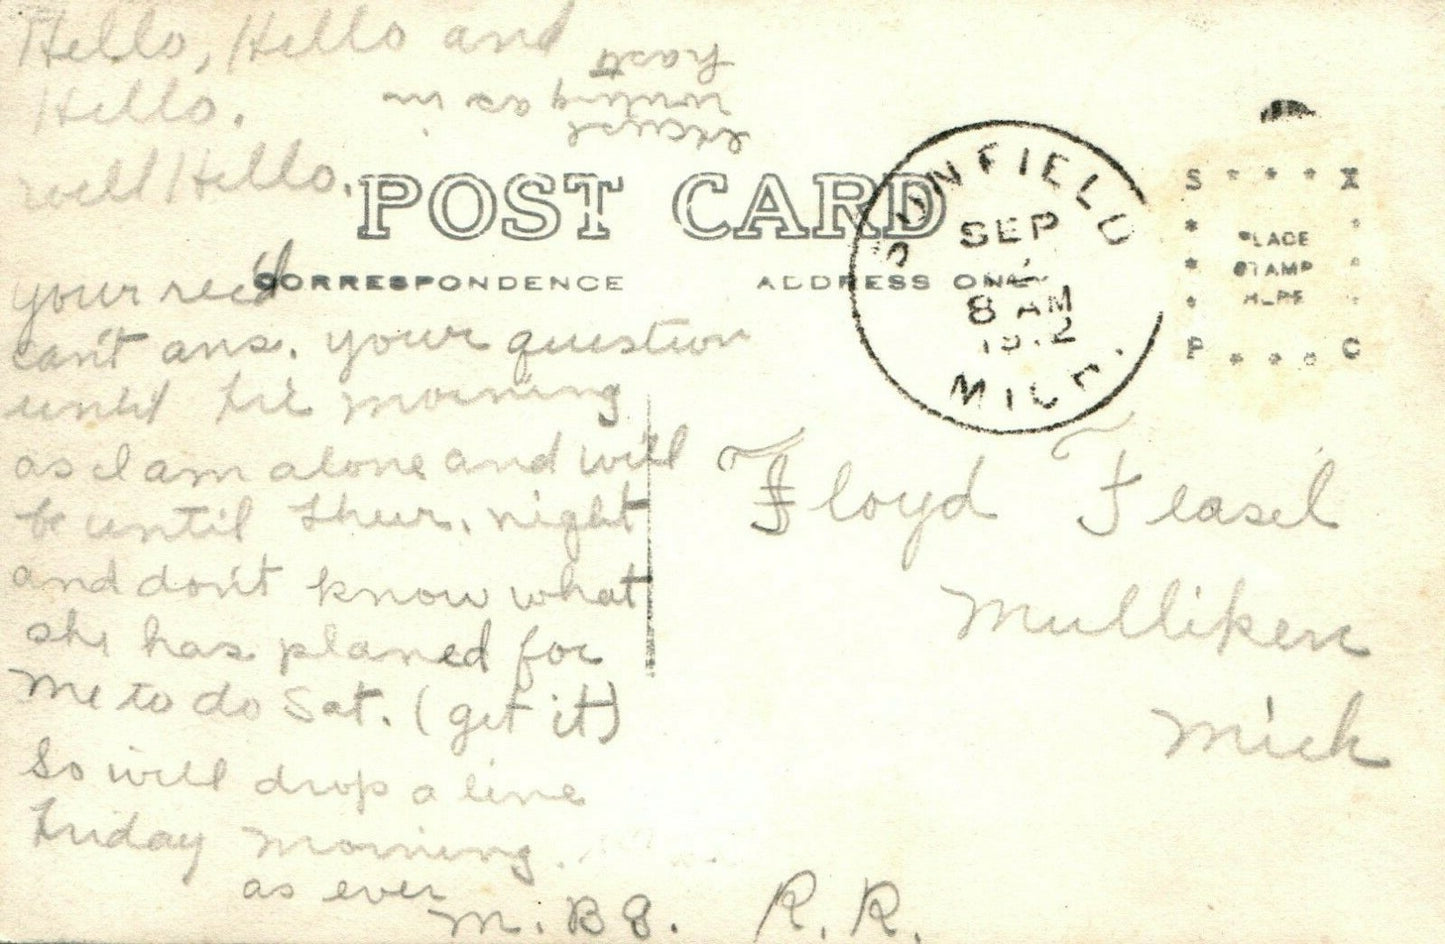 Hello, Hello and
Hello.
well Hello.
excuse
writing as in
hast
POST CARD
CORRESPONDENCE
ADDRESS ONLY
SUNFIELD
SEP
8 AM
1912
MICH.
PLACE
STAMP
HERE
your rec'd
can't ans. your question
until Fri morning
as I am alone and will
be until Thur. night
and don't know what
she has planed for
me to do Sat. (get it)
So will drop a line
Friday morning.
as ever
M. B 8.
Floyd Feasel
Mulliken
Mich
R. R.